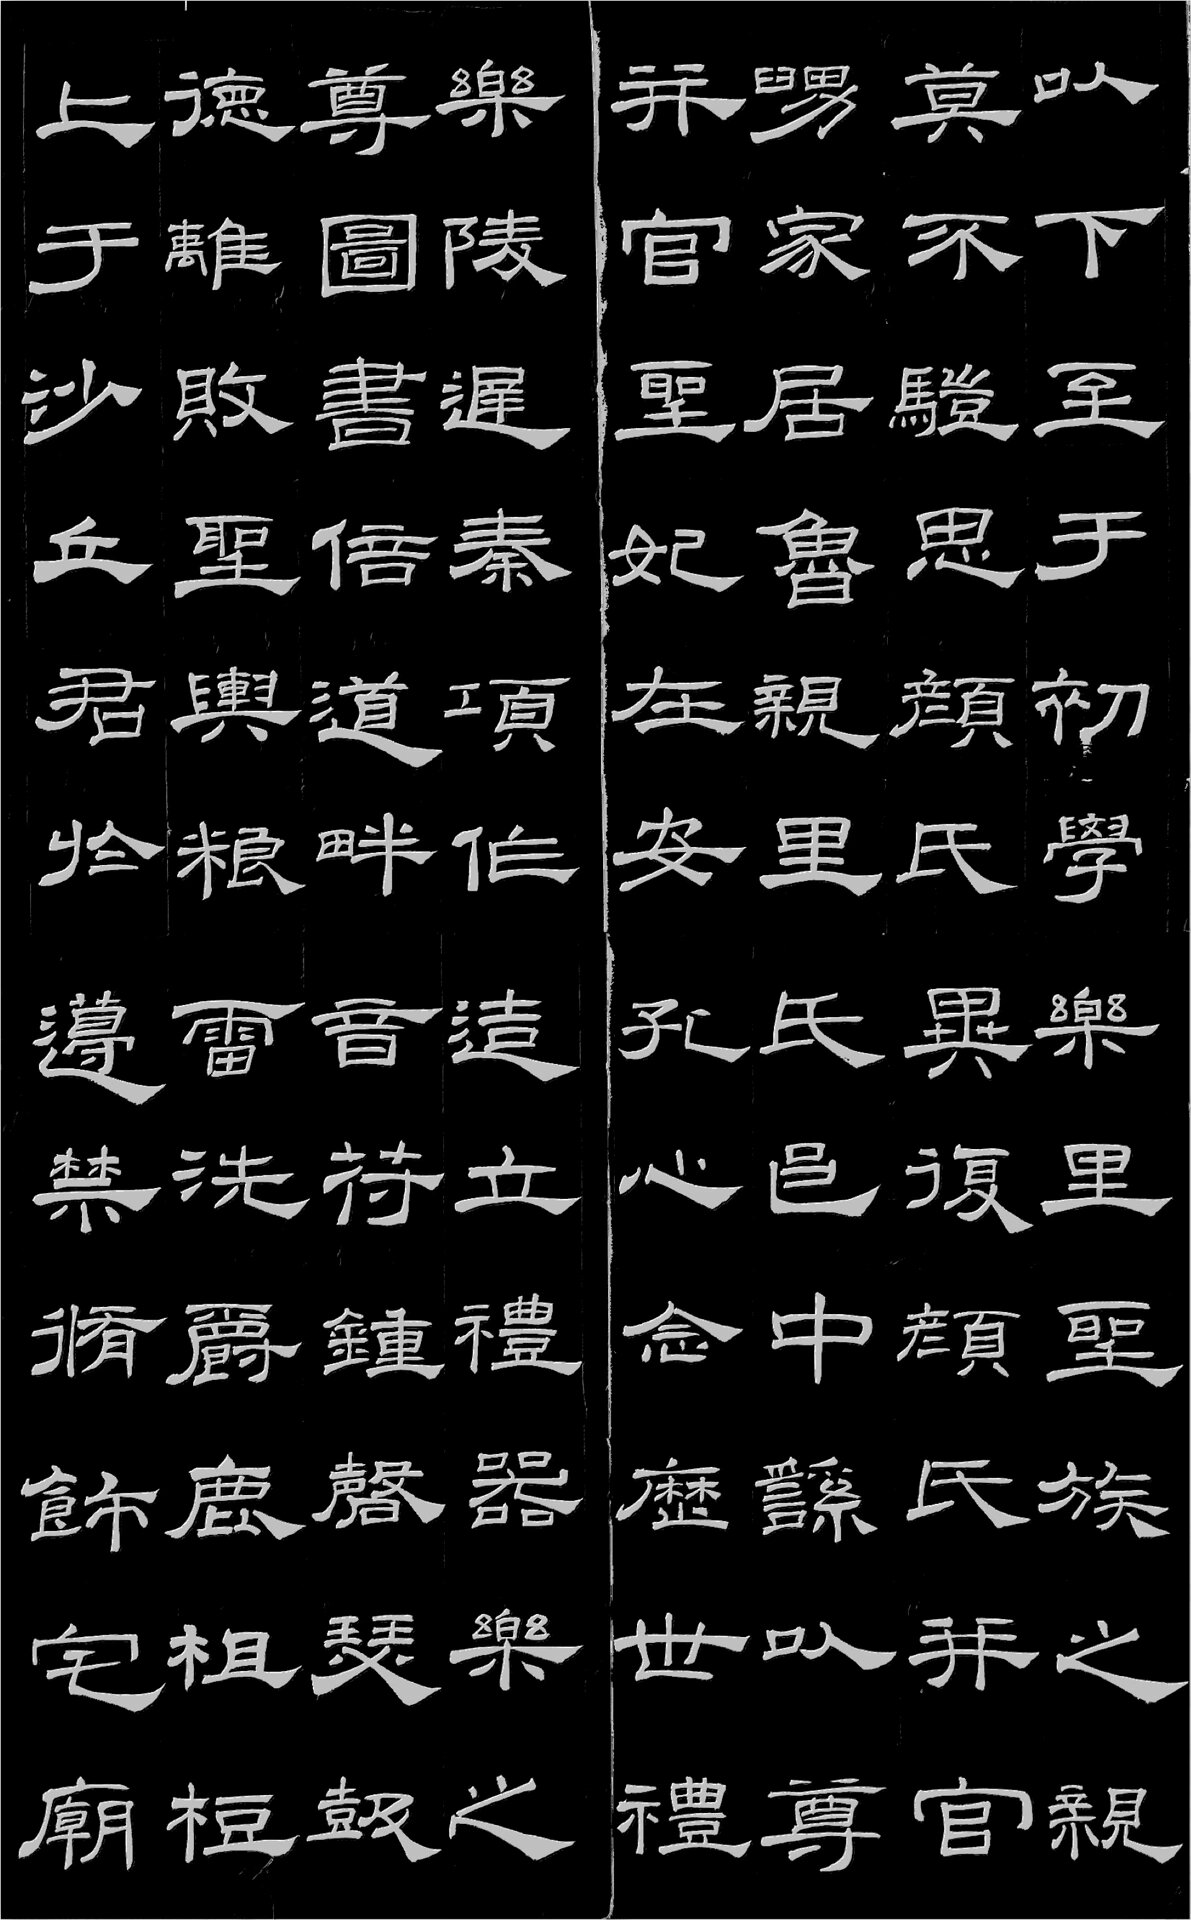 以下至于初學樂里聖族之親
莫不䮗思顏氏異復顏氏并官
舅家居魯親里氏邑中繇以尊
并官聖妃在安孔心念歷世禮
樂陵遲秦項作造立禮器樂之
尊圖書倍道畔音符鍾磬瑟鼓
德離敗聖輿粮雷洗爵鹿柤梪
上于沙丘君於籩禁脩飾宅廟